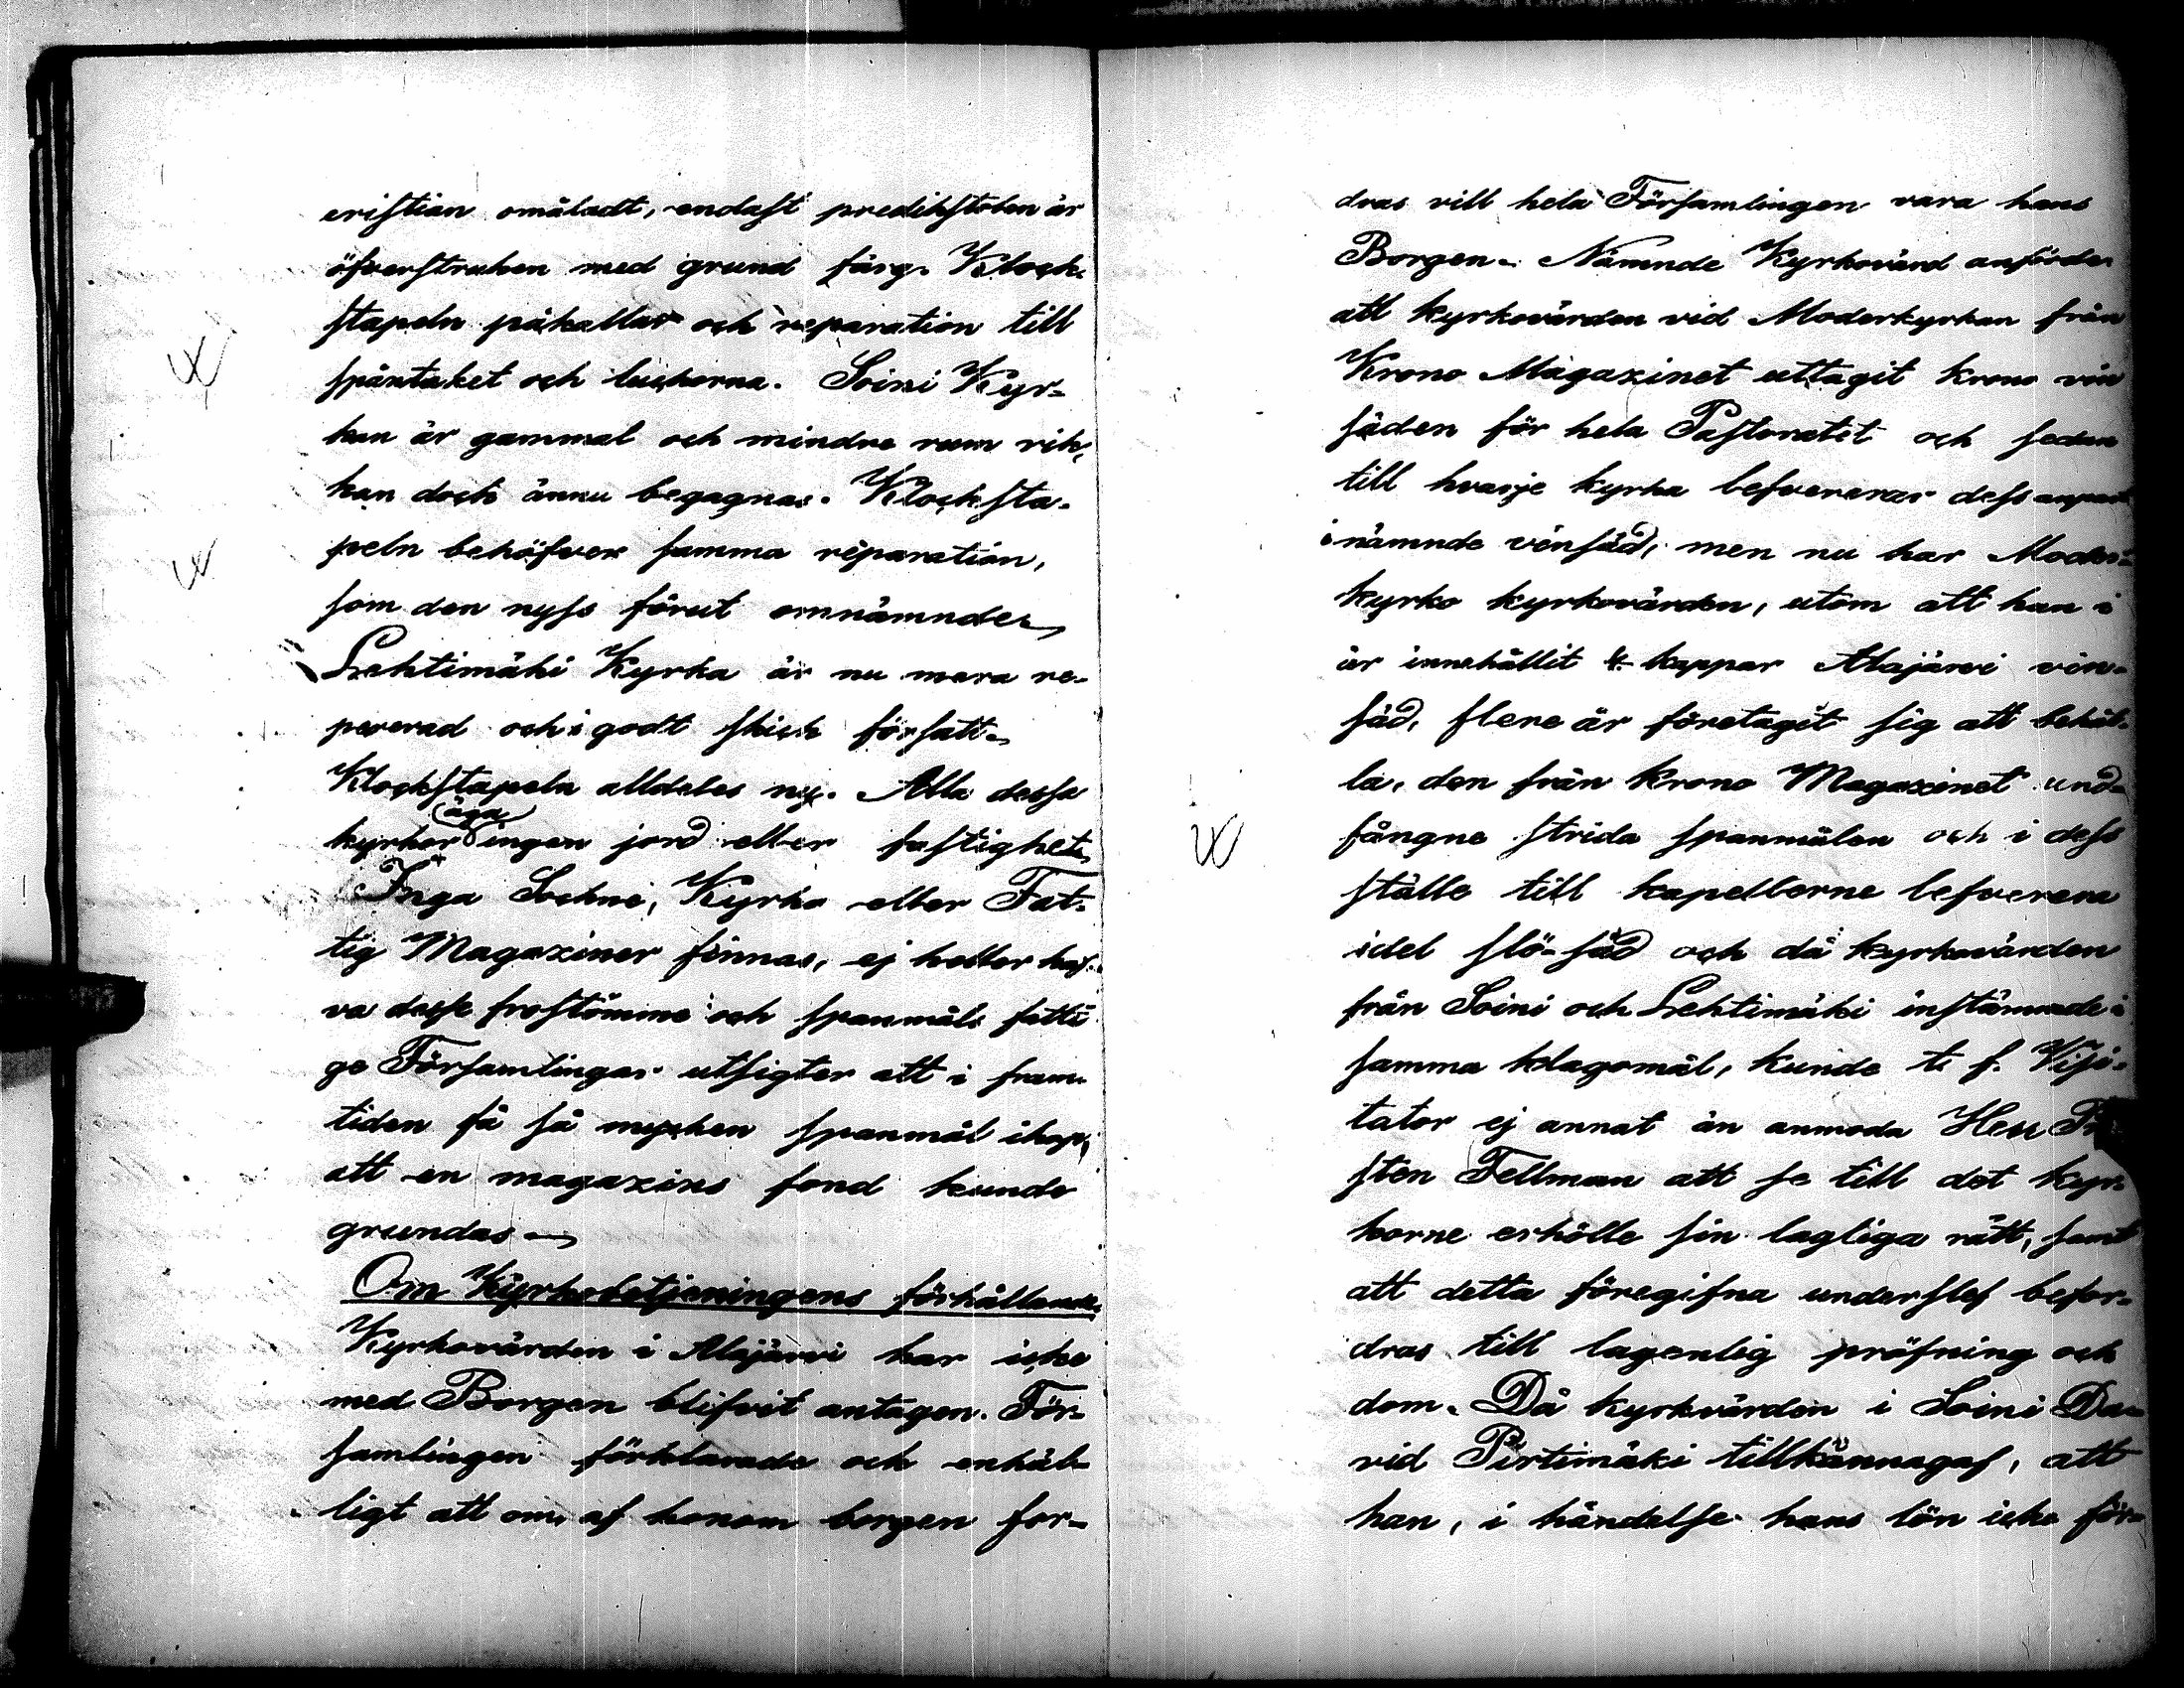 eristian omåladt, endast predikstolen är
öfverstruken med grund färg. Klock-
stapeln påkallar och reparation till
spåntaket och luckorna. Soini Kyr-
kan är gammal och mindre rum rik,
kan dock ännu begagnas. Klocksta-
peln behöfver samma reparation,
som den nyss förut omnämnde.
Lehtimäki Kyrka är nu mera re-
pererad och i godt skick försatt.
Klockstapeln alldeles ny. Alla dessa
kyrkor äga ingen jord eller fastighet.
Inga Sockne, Kyrko eller Fat-
tig Magaziner finnas, ej heller haf-
va desse frostömme och spanmåls fatti
ge Församlingar utsigter att i fram-
tiden få så mycken spanmål ihop,
att en magazins fond kunde
grundas
Om Kyrkobetjeningens förhållande.
Kyrkovärden i Alajärvi har icke
med Borgen blifvit antagen. För-
samlingen förklarade och enhäl-
ligt att om af honom borgen for-
dras vill hela Församlingen vara hans
Borgen. Nämnde Kyrkovärd anförde
att kyrkovärden vid Moderkyrkan från
Krono Magazinet uttagit krono vin
säden för hela Pastoratet och sedan
till hvarje kyrka lefvererar dess
i nämnde vinsäd, men nu har Moder-
kyrko kyrkovärden, utom att han i
år innehållit 4 kappar Alajärvi vin-
säd, flere år företagit sig att behål-
la, den från Krono Magazinet und-
fångne strida spanmålen och i dess
ställe till kapellerne lefverera
idel slö-säd och då kyrkovärden
från Soini och Lehtimäki instämmade i
samma klagomål, kunde t. f. Visi-
tator ej annat än anmoda Herr
sten Fellman att se till det kyr-
korne erhölle sin lagliga rätt, samt
att detta föregifna underslef befor-
dras till lagenlig pröfning och
dom. Då kyrkvärden i Soini Da-
vid Pirtimäki tillkännagaf, att
han, i händelse hans lön icke för-